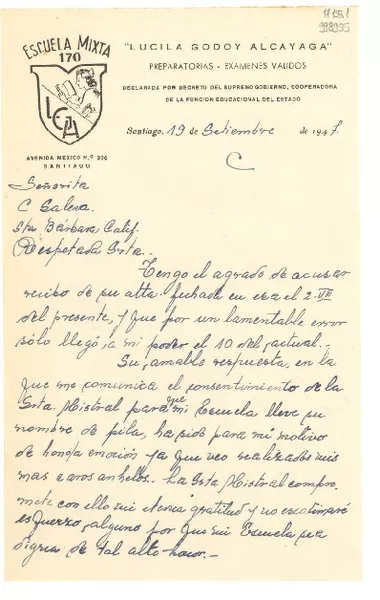 ESCUELA MIXTA
170
LGA
AVENIDA MEXICO N.º
SANTIAGO
"LUCILA GODOY ALCAYAGA"
PREPARATORIAS - EXAMENES VALIDOS
DECLARADA POR DECRETO DEL SUPREMO GOBIERNO, COOPERADORA
DE LA FUNCION EDUCACIONAL DEL ESTADO
Santiago, 19 de Setiembre de 1947.
C
Señorita
C Galera.
Sta Bárbara Calif.
Respetada Srta.
Tengo el agrado de acusar
recibo de su atta. fechada en esa el 2-VII
del presente, y que por un lamentable error
sólo llegó a mi poder el 10 del actual.-
Su amable respuesta, en la
que me comunica el consentimiento de la
Srta. Mistral para que mi Escuela lleve su
nombre de pila, ha sido para mi motivo
de honda emoción ya que veo realizados mis
mas caros anhelos. La Srta Mistral compro-
mete con ello mi eterna gratitud y no escatimaré
esfuerzo alguno por que mi Escuela sea
digna de tal alto honor.-